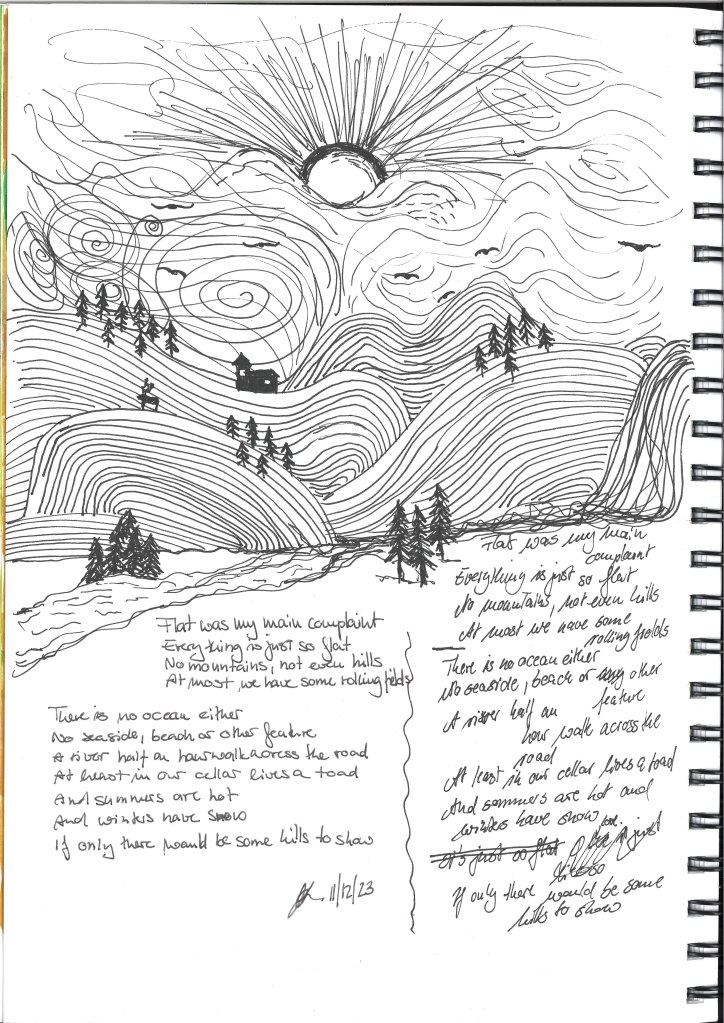 Flat was my main complaint
Everything is just so flat
No mountains, not even hills
At most we have some rolling fields
There is no ocean either
No seaside, beach or other feature
A river half an hour walk across the road
At least in our cellar lives a toad
And summers are hot
And winters have snow
If only there would be some hills to show
11/12/23
Flat was my main
complaint
Everything is just so flat
No mountains, not even hills
At most we have some
rolling fields
There is no ocean either
No seaside, beach or any other
feature
A river half an
hour walk across the
road
At least in our cellar lives a toad
And summers are hot and
winters have snow
It's just so flat
just
If only there would be some
hills to show